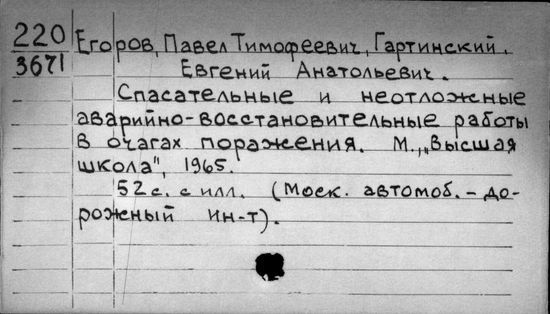 220 Егоров, Павел Тимофеевич, Гартинский.
3671 Евгений Анатольевич.
Спасательные и неотложные
аварийно-восстановительные работы
в очагах поражения. М., „Высшая
школа", 1965.
52 с. с илл. (Моск. автомоб. - до-
рожный ин-т).